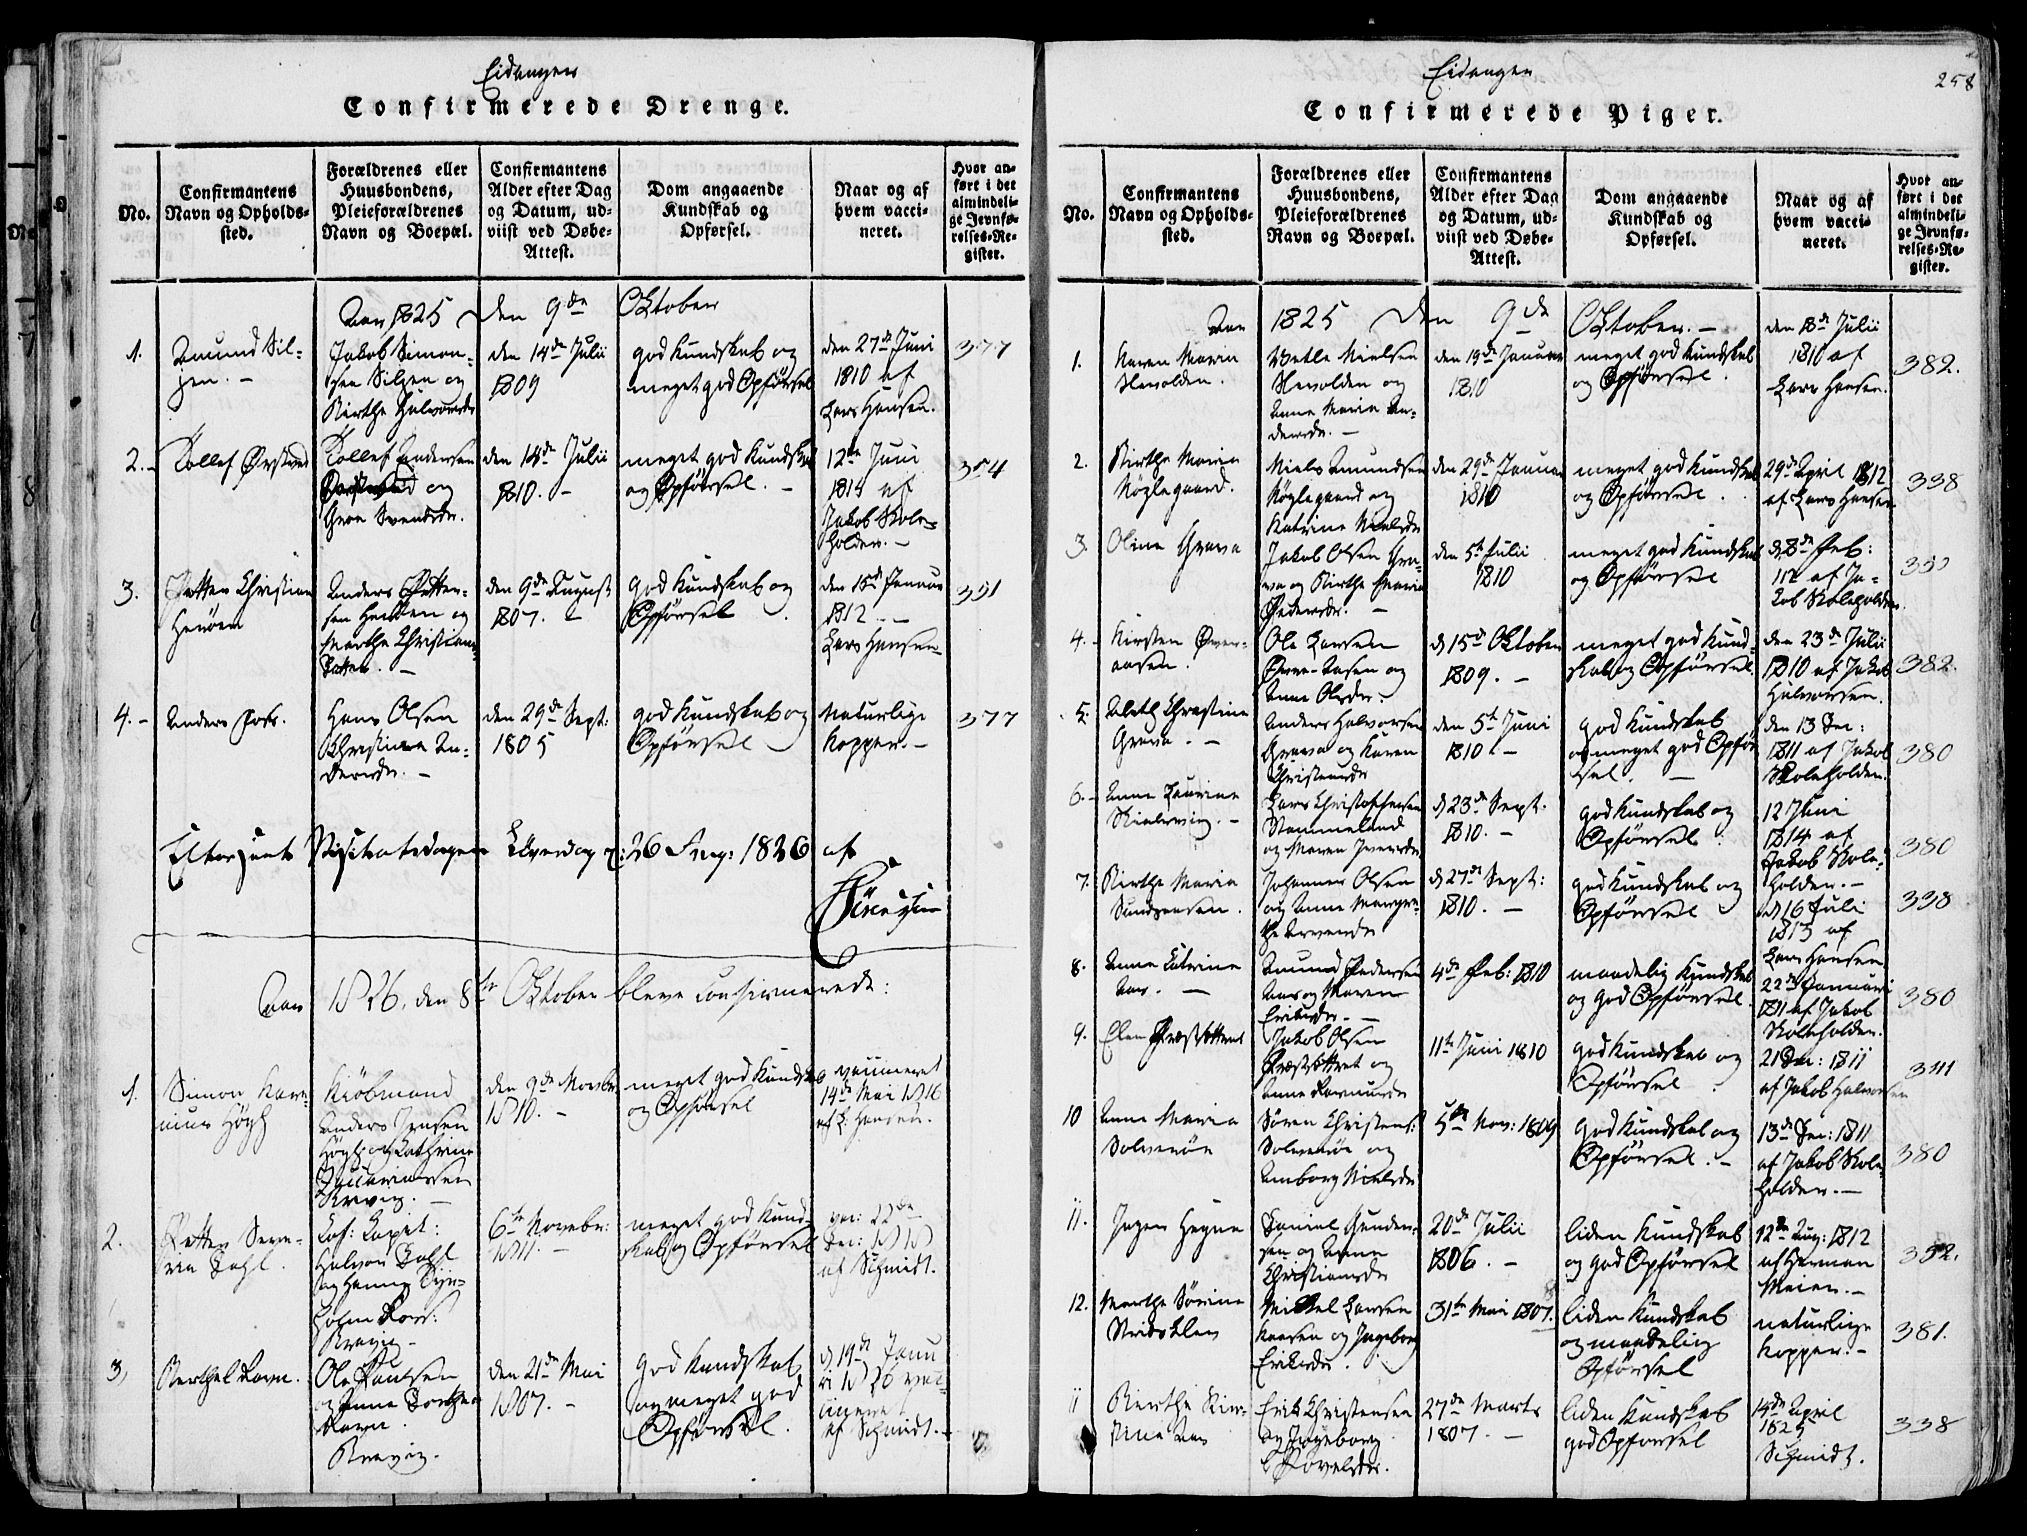 Eidanger
Confirmerede Drenge.
No.
Confirmantens
Navn og Opholds-
sted.
Forældrenes eller
Huusbondens,
Pleieforældrenes
Navn og Boepæl.
Confirmantens
Alder efter Dag
og Datum, ud-
viist ved Døbe-
Attest.
Dom angaaende
Kundskab og
Opførsel.
Naar og af
hvem vacci-
neret.
Hvor an-
ført i det
almindeli-
ge Jevnfø-
relses-Re-
gister.
Aar 1825 den 9de Oktober
1.
Amund Sil-
jen. -
Jakob Simon-
sen Siljen og
Birthe Halvorsdr
den 14de Julii
1809
god Kundskab og
meget god Opførsel
den 27de Juni
1810 af
Lars Hansen.
377
2. -
Tollef Ørstved
Tollef Andersen
Ørstved og
Svendsdr.
den 14de Julii
1810. -
meget god Kundskab
og Opførsel. -
12te Juni
1814 af
Jakob Skole-
holder. -
354
3.
Petter Christian
Herøen
Anders Petter-
sen Herøen og
Marthe Christians
Datter. -
den 9de August
1807. -
god Kundskab og
Opførsel.
den 16de Januar
1812 -
Lars Hansen
351
4. -
Anders
Hans Olsen
Christiana An-
dersdr. -
den 29de Sept:
1805
god Kundskab og
Opførsel
Naturlige
Kopper. -
377
Efterseet Visitatsdagen Løverdag d: 26 Aug: 1826 af
Sörensen
Aar 1826, den 8de Oktober bleve Confirmerede:
1.
Simon Kar-
inius Högh
Kiöbmand
Anders Jensen
Högh og Cathrine
Brevig. -
den 9de Novbr
1810. -
meget god Kundskab
og Opførsel
vaccineret
14de Mai 1816
af L: Hansen.
2.
Petter Seve-
rin Dahl.
Halvor Dahl
og
Brevig -
6te Novbr:
1811. -
meget god Kund-
skab og Opførsel
vac: 22de
Dec: 1818
af Schmidt.
3,
Berthel Ravn.
Ole Paulsen
og Anne
Ravn.
Brevig.
den 21de Mai
1807. -
God Kundskab
og meget god
Opførsel.
d 19de Janu
1826 vac-
cineret
af Schmidt. -
Eidanger
258
Confirmerede Piger.
No.
Confirmantens
Navn og Opholds-
sted.
Forældrenes eller
Huusbondens,
Pleieforældrenes
Navn og Boepæl.
Confirmantens
Alder efter Dag
og Datum, ud-
viist ved Døbe-
Attest.
Dom angaaende
Kundskab og
Opførsel.
Naar og af
hvem vacci-
neret.
Hvor an-
ført i det
almindeli-
ge Jevnfø-
relses-Re-
gister.
Aar 1825 den 9de Oktober. -
1.
Karen Maria
Nevolden.
Vetle Nielsen
Nevolden og
Anne Maria An-
dersdr. -
den 19de Januar
1810
meget god Kundskab
og Opførsel.
den 18de Julii
1810 af
Lars Hansen.
382.
2.
Birthe Maria
Nøglegaard.
Niels Amundsen
Nøglegaard og
Katrine Nielsdr
den 29de Januar
1810
meget god Kundskab
og Opførsel.
29de April 1812
af Lars Hansen
338
3.
Oline Grava
Jakob Olsen Gra-
va og Birthe Maria
Pedersdr. -
den 5te Julii
1810
meget god Kundskab
og Opførsel
d 8de Feb:
af Ja-
kob Skoleholder.
4. -
Kirsten Øver-
aasen.
Ole Larsen
Øvre-Aasen og
Anne Olsdr.
d 15de Oktober
1809. -
meget god Kund-
skab og Opførsel.
den 23de Julii
1810 af Jakob
Halvorsen.
382.
5.
Aleth Christine
Grava. -
Anders Halvorsen
Grava og Karen
Christensdr
den 5te Juni
1810 -
god Kundskab
og meget god Opfør
sel. -
den 13 Dec:
1811 af Jakob
Skoleholder.
380
6. -
Anne Laurine
Skielsvig. -
Lars Christophersen
Stammeland
og Maren Iversdr
d 23de Sept.
1810. -
god Kundskab og
Opførsel.
12 Juni
1814 af
Jakob Skole-
holder. -
380
7.
Birthe Maria
Sundjordsen.
Johannes Olsen
og Anne Margre-
the
d 27de Sept:
1810. -
god Kundskab og
Opførsel
d 16 Juli
1813 af
Lars Hansen
338
8.
Anne Katrine
Aas. -
Amund Pedersen
Aas og Maren
Eriksdr. -
4de Feb: 1810
maadelig Kundskab
og god Opførsel.
22de Januari
1811 af Jakob
Skoleholder.
380
9.
Elen Præstøttret
Jakob Olsen
Præstøttret og
Anne Rasmusdr
11te Juni 1810
god Kundskab og
Opførsel
21 Dec: 1811
af Jakob Halvorsen
10
Anne Maria
Solverøen
Søren Christens:
Solverøe og
Amborg Nielsdr
5te Nov: 1809
god Kundskab og
Opførsel. -
13de Dec: 1811
af Jakob Skole-
holder. -
380
11.
Inger Hegna
Daniel Gunder-
sen og Anne
Christiansdr
20de Julii
1806. -
liden Kundskab
og god Opførsel
12te Aug: 1812
af Herman
Meier. -
352.
12.
Marthe Sørine
Mikkel Larsen
og Ingeborg
Eriksdr.
31te Mai 1807.
liden Kundskab
og maadelig
Opførsel
naturlige
Kopper. -
381.
11
Birthe Kir-
stine Aas
Erik Christensen
og Ingeborg
Povelsdr.
27de Marts
1807. -
liden Kundskab
god Opførsel
14de April
1825
Schmidt.
338